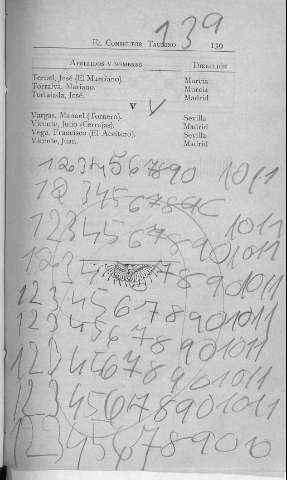 139
EL CONSULTOR TAURINO 139
APELLIDOS Y NOMBRES DIRECCIÓN
Teruel, José (El Murciano). Murcia
Torralva, Mariano. Murcia
Tortajada, José. Madrid
V V
Vargas, Manuel (Tornero). Sevilla
Vicente, Julio (Cerrajas). Madrid
Vega, Francisco (El Aceitero). Sevilla
Vicente, Juan. Madrid
1234567890 1011
12 34567890
1234567890 1011
1234567890 1011
1234567890 1011
1234567890 1011
1234567890 1011
1234567890 1011
1234567890 1011
1234567890 10